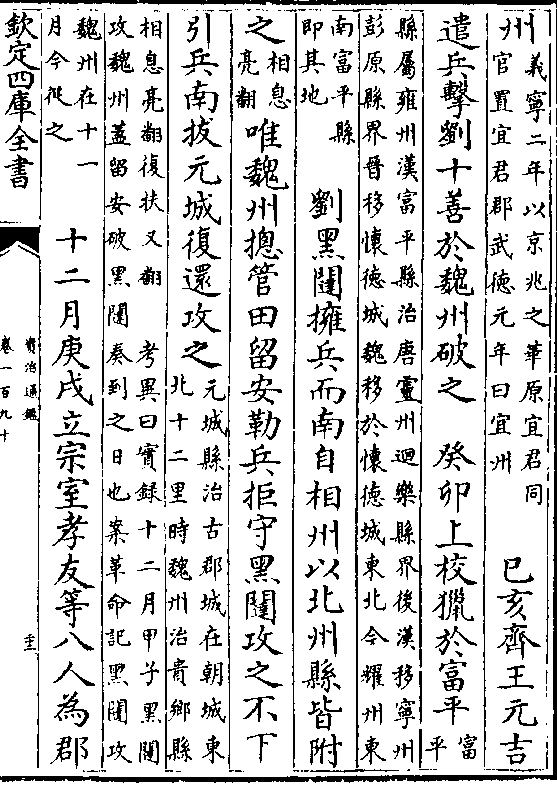 州義寧二年以京兆之華原宜君同官置宜君郡武徳元年曰宜州 已亥齊王元吉
遣兵擊劉十善於魏州破之 癸卯上校獵於富平富平
縣屬雍州漢富平縣治唐靈州迴樂縣界後漢移寧州
彭原縣界晉移懷徳城魏移於懷徳城東北今耀州東
南富平縣即其地 劉黑闥擁兵而南自相州以北州縣皆附
之相息亮翻唯魏州摠管田留安勒兵拒守黑闥攻之不下
引兵南拔元城復還攻之元城縣治古郡城在朝城東北十二里時魏州治貴鄉縣
相息亮翻復扶又翻 考異曰實録十二月甲子黑闥
攻魏州蓋留安破黑闥奏到之日也案革命記黑闥攻
魏州在十一月今從之 十二月庚戌立宗室孝友等八人為郡
欽定四庫全書
資治通鑑
卷一百九十